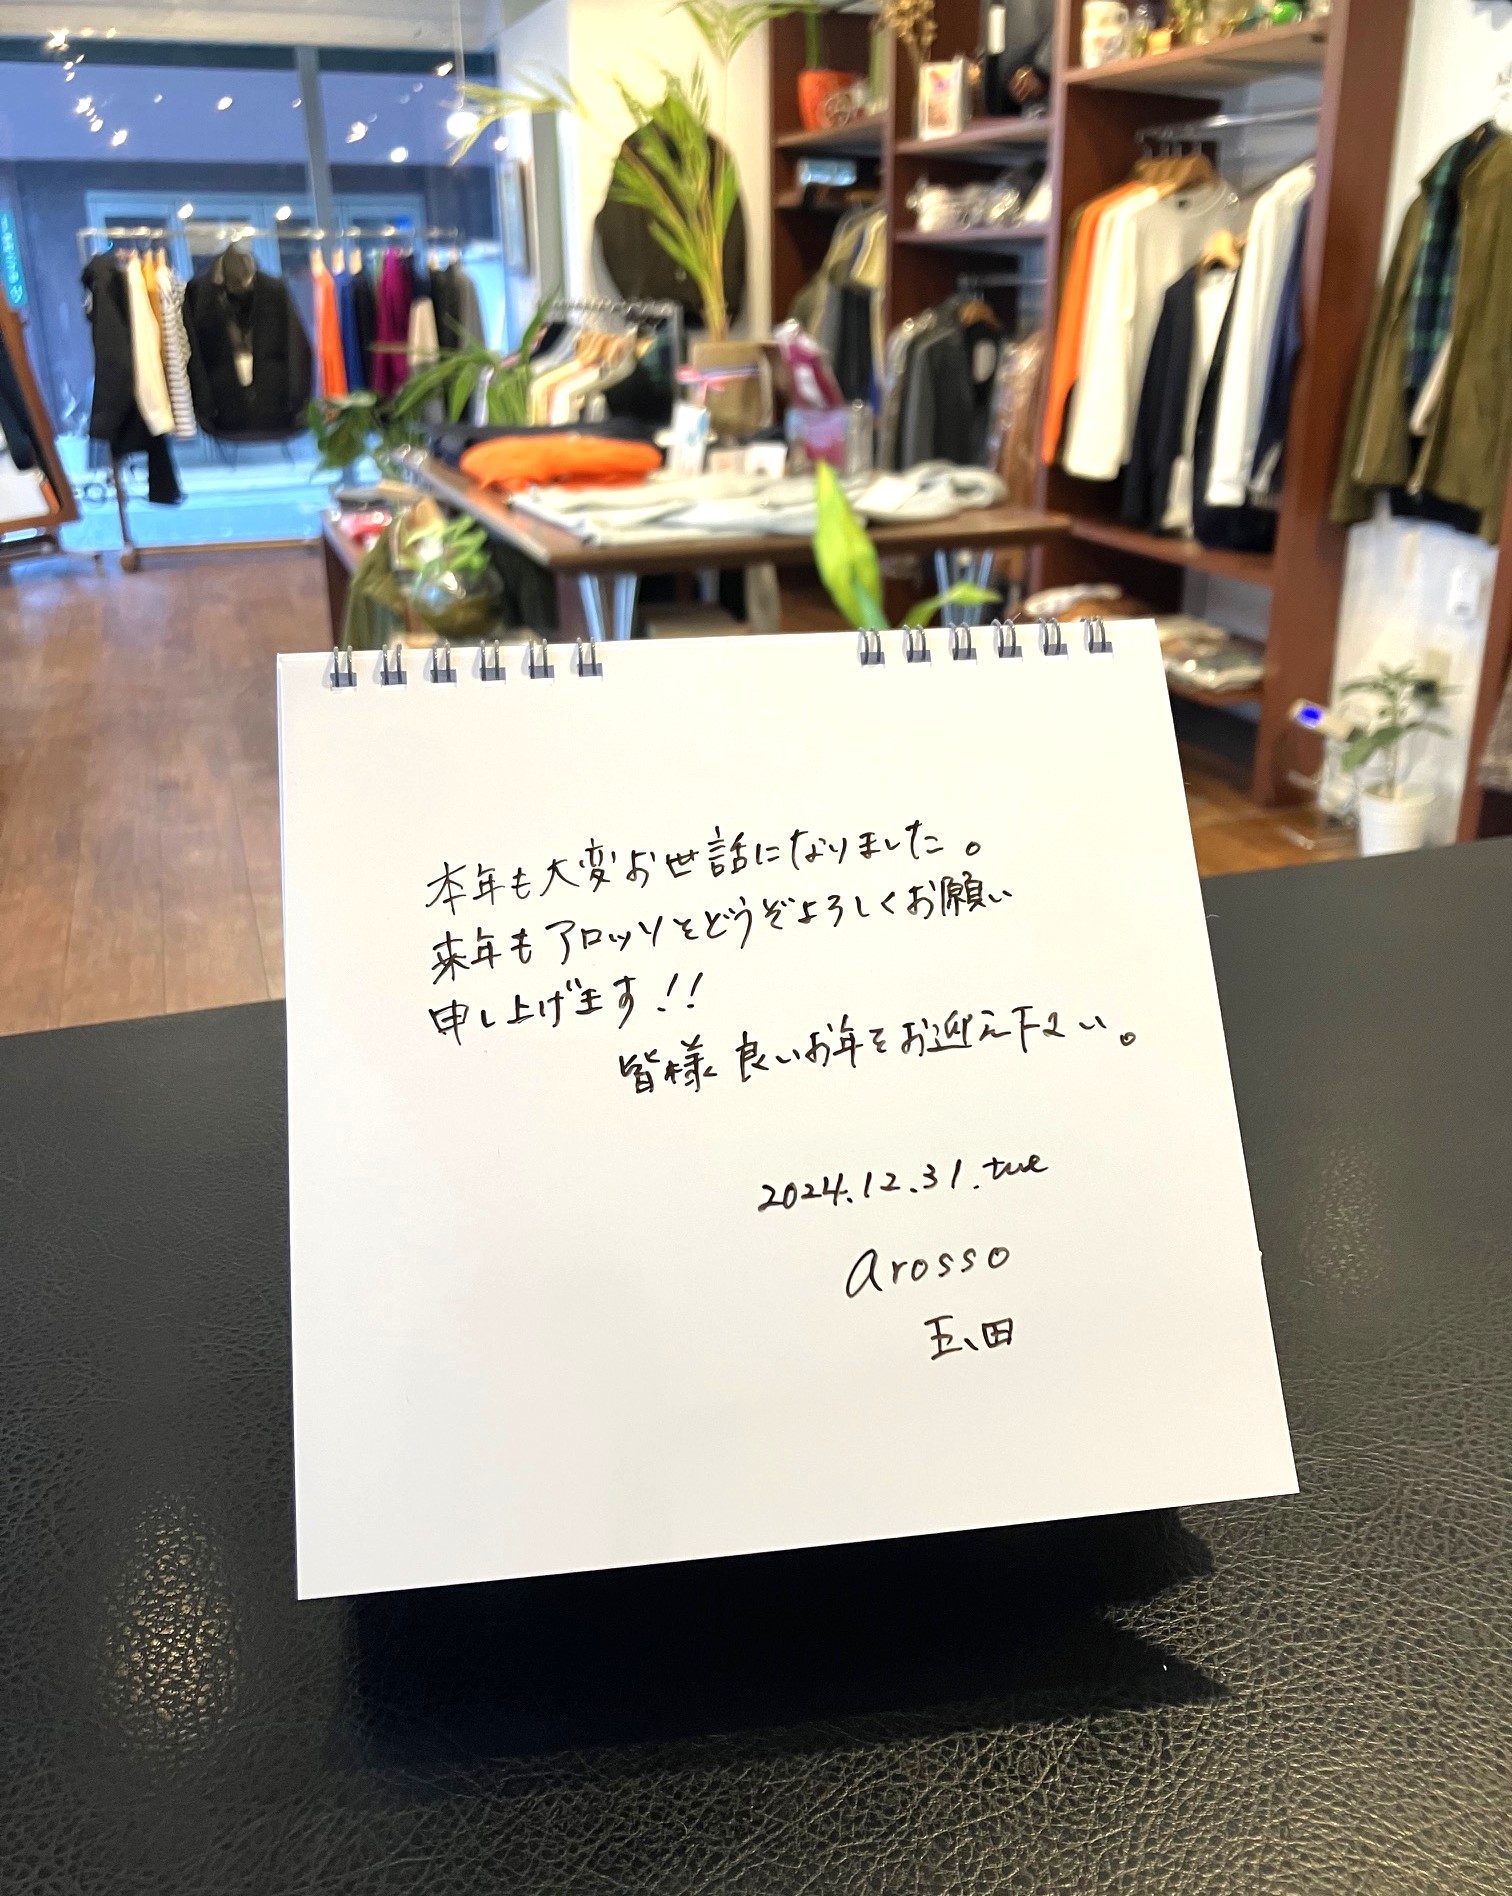 本年も大変お世話になりました。
来年もアロッソをどうぞよろしくお願い
申し上げます!!
皆様 良いお年をお迎え下さい。
2024.12.31.tue
arosso
玉田